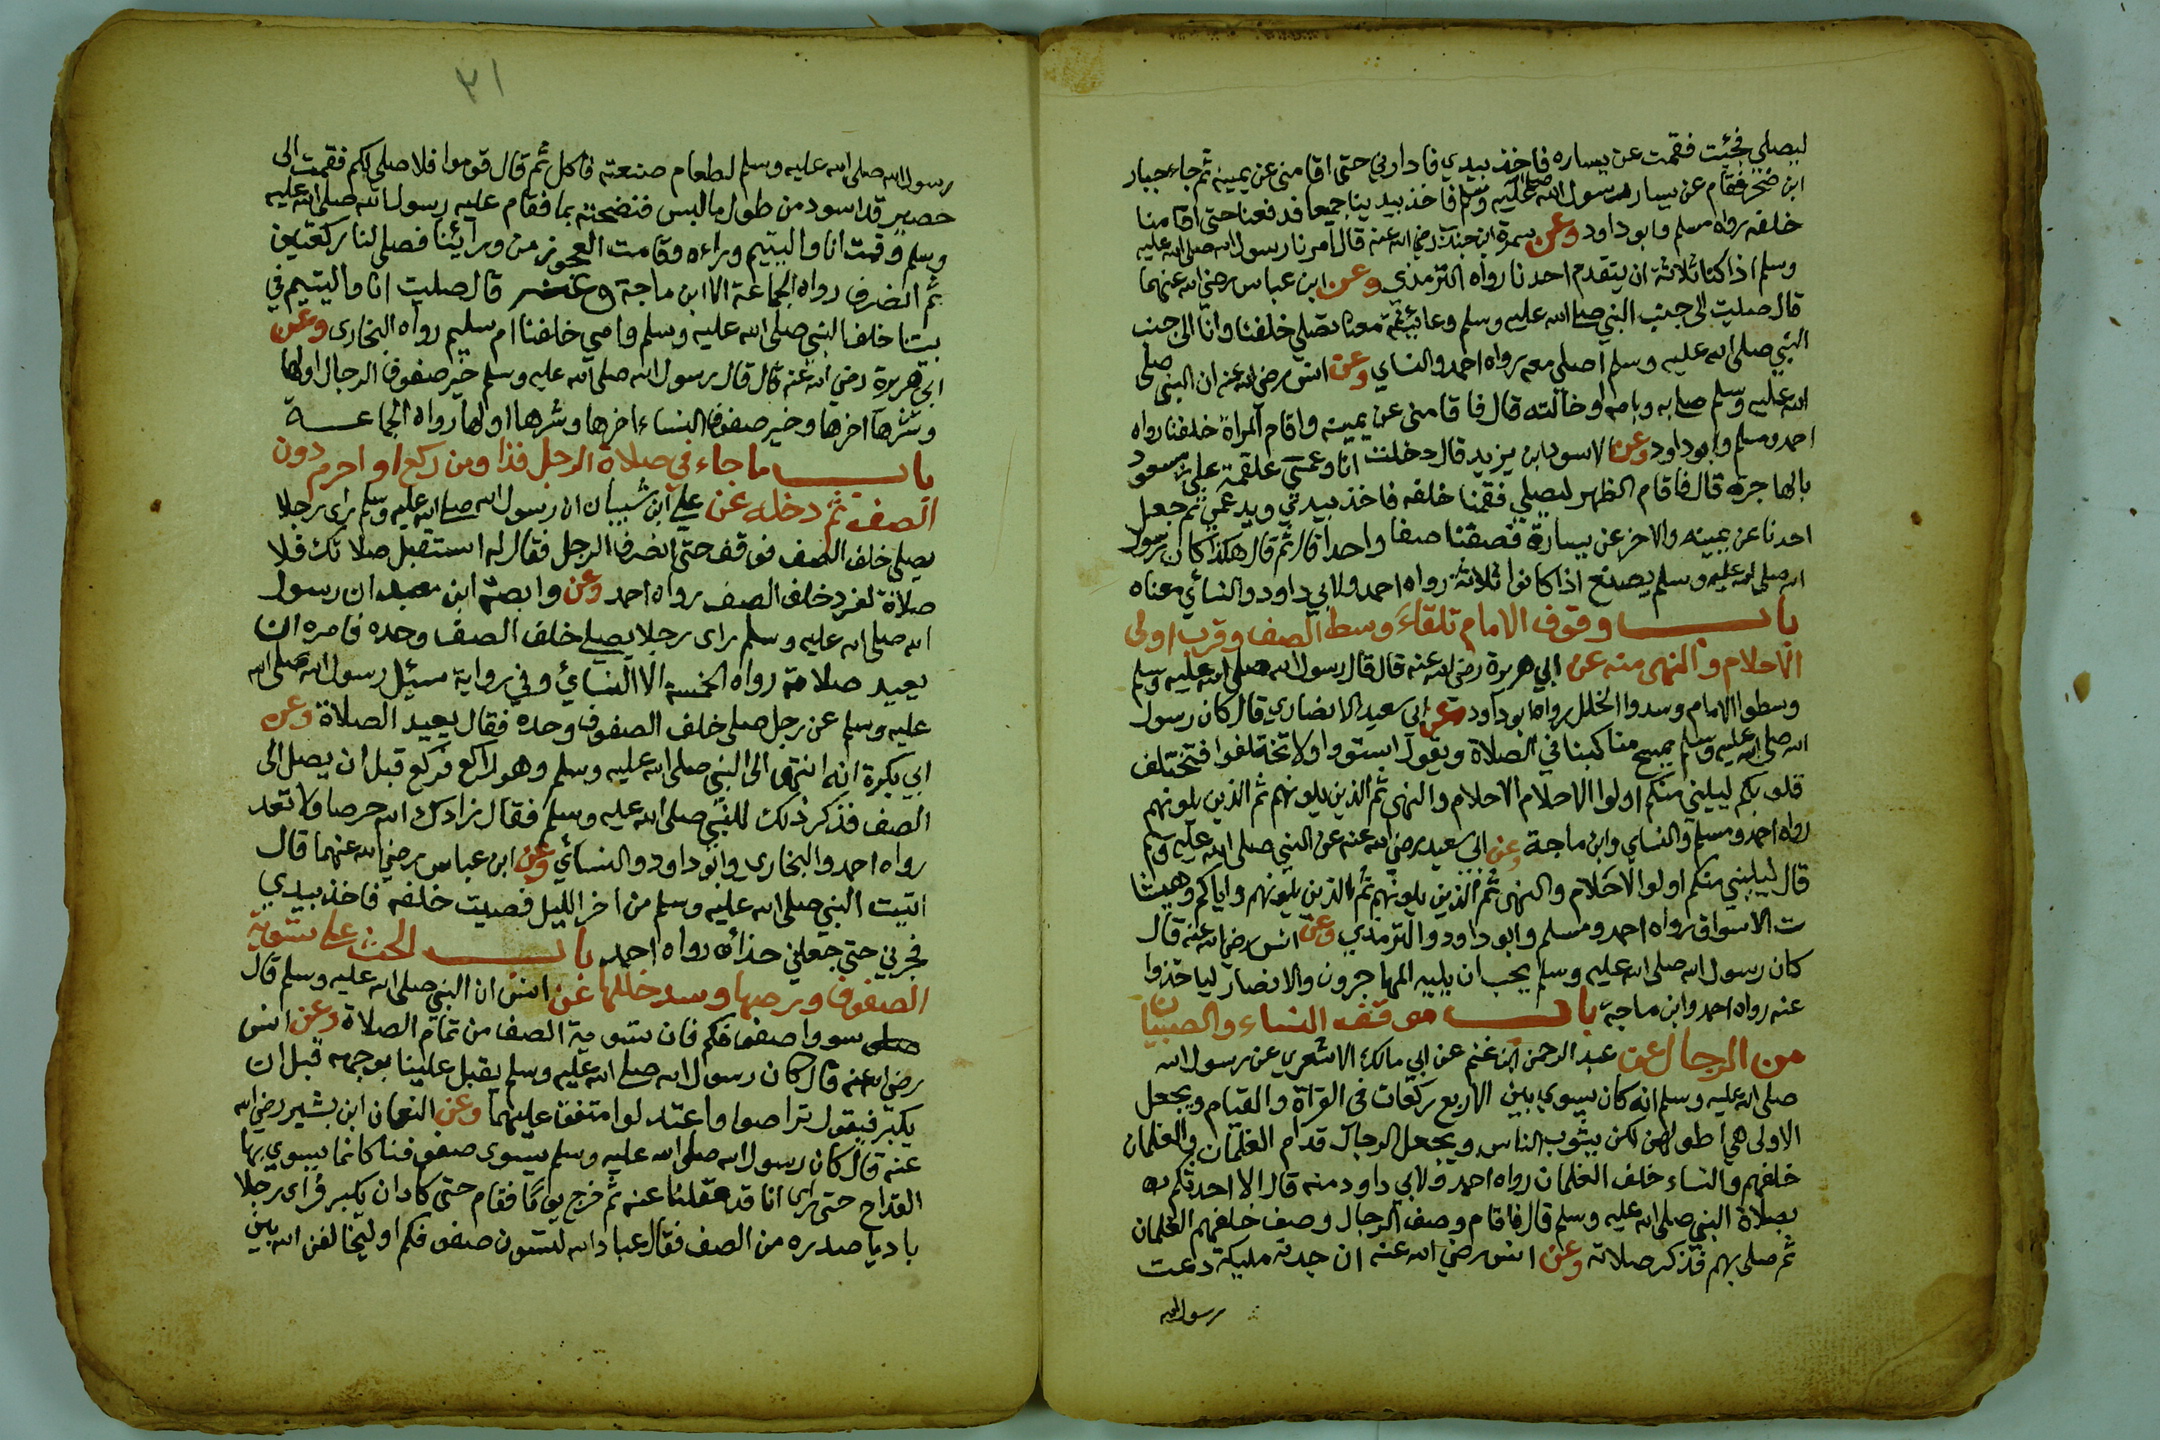 ليصلي فجئت فقمت عن يساره فاخذ بيدي فادارني حتى اقامني عن يمينه ثم جاء جبار
ابن صخر فقام عن يسار رسول الله صلى الله عليه وسلم فاخذ بيدينا جميعا فدفعنا حتى اقامنا
خلفه رواه مسلم وابو داود وعن سمرة ابن جندب رضي الله عنه قال امرنا رسول الله صلى الله عليه
وسلم اذا كنا ثلاثة ان يتقدم احدنا رواه الترمذي وعن ابن عباس رضي الله عنهما
قال صليت الى جنب النبي صلى الله عليه وسلم وعائشة معنا تصلي خلفنا وانا الى جنب
النبي صلى الله عليه وسلم اصلي معه رواه احمد والنساي وعن انس رضي الله عنه ان النبي صلى
الله عليه وسلم صلى به وبامه او خالته قال فاقامني عن يمينه واقام المراة خلفنا رواه
احمد ومسلم وابو داود وعن الاسود ابن يزيد قال دخلت انا وعمي علقمة على ابن مسعود
بالهاجرة قال فاقام الظهر ليصلي فقمنا خلفه فاخذ بيدي ويد عمي ثم جعل
احدنا عن يمينه والاخر عن يساره فصفنا صفا واحدا قال ثم قال هكذا كان رسول
الله صلى الله عليه وسلم يصنع اذا كانوا ثلاثة رواه احمد ولابي داود والنسائي معناه
باب وقوف الامام تلقاء وسط الصف وقرب اولى
الاحلام والنهى منه عن ابي هريرة رضي الله عنه قال قال رسول الله صلى الله عليه وسلم
وسطوا الامام وسدوا الخلل رواه ابو داود وعن ابي سعيد الانصاري قال كان رسول
الله صلى الله عليه وسلم يمسح مناكبنا في الصلاة ويقول استووا ولا تختلفوا فتختلف
قلوبكم ليليني منكم اولوا الاحلام الاحلام والنهى ثم الذين يلونهم ثم الذين يلونهم
رواه احمد ومسلم والنساي وابن ماجة وعن ابي سعيد رضي الله عنه عن النبي صلى الله عليه وسلم
قال ليليني منكم اولوا الاحلام والنهى ثم الذين يلونهم ثم الذين يلونهم واياكم وهيشا
ت الاسواق رواه احمد ومسلم وابو داود والترمذي وعن انس رضي الله عنه قال
كان رسول الله صلى الله عليه وسلم يحب ان يليه المهاجرون والانصار لياخذوا
عنه رواه احمد وابن ماجة باب موقف النساء والصبيان
من الرجال عن عبد الرحمن ابن غنم عن ابي مالك الاشعري عن رسول الله
صلى الله عليه وسلم انه كان يسوي بين الاربع ركعات في القراة والقيام ويجعل
الاولى هي اطولهن لكي يثوب الناس ويجعل الرجال قدام الغلمان والغلمان
خلفهم والنساء خلف الغلمان رواه احمد ولابي داود منه قال الا احدثكم
بصلاة النبي صلى الله عليه وسلم قال فاقام وصف الرجال وصف خلفهم الغلمان
ثم صلى بهم فذكر صلاته وعن انس رضي الله عنه ان جدته مليكة دعت
رسول الله
٣١
رسول الله صلى الله عليه وسلم لطعام صنعته فاكل ثم قال قوموا فلاصلي لكم فقمت الى
حصير قد اسود من طول ما لبس فنضحته بما فقام عليه رسول الله صلى الله عليه
وسلم وقمت انا واليتيم وراءه وقامت العجوز من ورائنا فصلى لنا ركعتين
ثم انصرف رواه الجماعة الا ابن ماجة وعنه قال صليت انا واليتيم في
بيتنا خلف النبي صلى الله عليه وسلم وامي خلفنا ام سليم رواه البخاري وعن
ابي هريرة رضي الله عنه قال قال رسول الله صلى الله عليه وسلم خير صفوف الرجال اولها
وشرها اخرها وخير صفوف النساء اخرها وشرها اولها رواه الجماعة
باب ما جاء في صلاة الرجل فذا ومن ركع او احرم دون
الصف ثم دخله عن علي ابن شيبان ان رسول الله صلى الله عليه وسلم راى رجلا
يصلي خلف الصف فوقف حتى انصرف الرجل فقال له استقبل صلاتك فلا
صلاة لفرد خلف الصف رواه احمد وعن وابصة ابن معبد ان رسول
الله صلى الله عليه وسلم راى رجلا يصلي خلف الصف وحده فامره ان
يعيد صلاته رواه الخمسة الا النسائي وفي رواية سئل رسول الله صلى الله
عليه وسلم عن رجل صلى خلف الصفوف وحده فقال يعيد الصلاة وعن
ابي بكرة انه انتهى الى النبي صلى الله عليه وسلم وهو راكع فركع قبل ان يصل الى
الصف فذكر ذلك للنبي صلى الله عليه وسلم فقال زادك الله حرصا ولا تعد
رواه احمد والبخاري وابو داود والنسائي وعن ابن عباس رضي الله عنهما قال
اتيت النبي صلى الله عليه وسلم من اخر الليل فصليت خلفه فاخذ بيدي
فجرني حتى جعلني حذائه رواه احمد باب الحث على تسوية
الصفوف ورصها وسد خللها عن انس ان النبي صلى الله عليه وسلم قال
صلى سووا صفوفكم فان تسوية الصف من تمام الصلاة وعن انس
رضي الله عنه قال كان رسول الله صلى الله عليه وسلم يقبل علينا بوجهه قبل ان
يكبر فيقول تراصوا واعتدلوا متفق عليهما وعن النعمان ابن بشير رضي الله
عنه قال كان رسول الله صلى الله عليه وسلم يسوي صفوفنا كانما يسوي بها
القداح حتى راى انا قد عقلنا عنه ثم خرج يوما فقام حتى كاد ان يكبر فراى رجلا
باديا صدره من الصف فقال عباد الله لتسون صفوفكم او ليخالفن الله بين